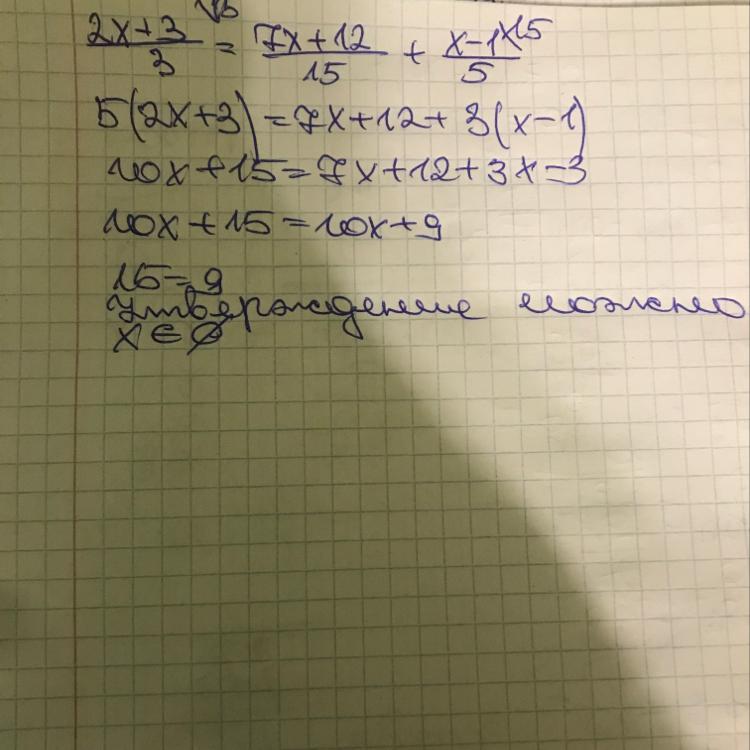 2x+3/3 = 7x+12/15 + x-1/5 ×15
5(2x+3)=7x+12+3(x-1)
10x+15=7x+12+3x-3
10x+15=10x+9
15=9
Утверждение можно
x∈∅